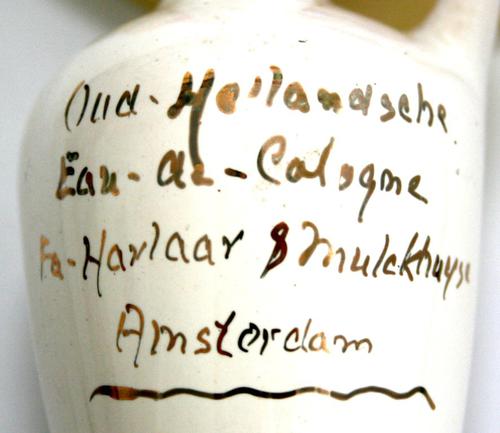 Oud-Hollandsche
Eau-de-Cologne
Fa-Harlaar & Mulckhuyse
Amsterdam